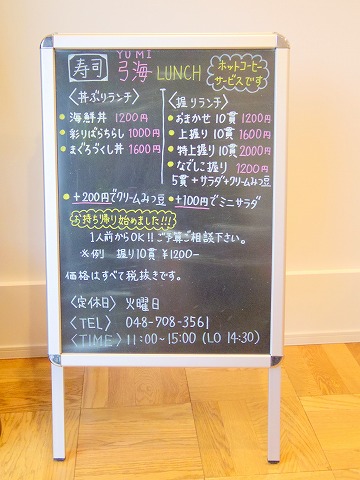 YUMI
寿司 弓海 LUNCH
ホットコーヒー
サービスです
〈丼ぶりランチ〉
・海鮮丼 1200円
・彩りばらちらし 1000円
・まぐろづくし丼 1600円
〈握りランチ〉
・おまかせ10貫 1200円
・上握り10貫 1600円
・特上握り10貫 2000円
・なでしこ握り 1200円
5貫+サラダ+クリームみつ豆
・+200円でクリームみつ豆
・+100円でミニサラダ
お持ち帰り始めました!!!
1人前からOK!!ご予算ご相談下さい。
※例 握り10貫 ¥1200-
価格はすべて税抜きです。
〈定休日〉 火曜日
〈TEL〉 048-708-3561
〈TIME〉 11:00~15:00 (LO 14:30)